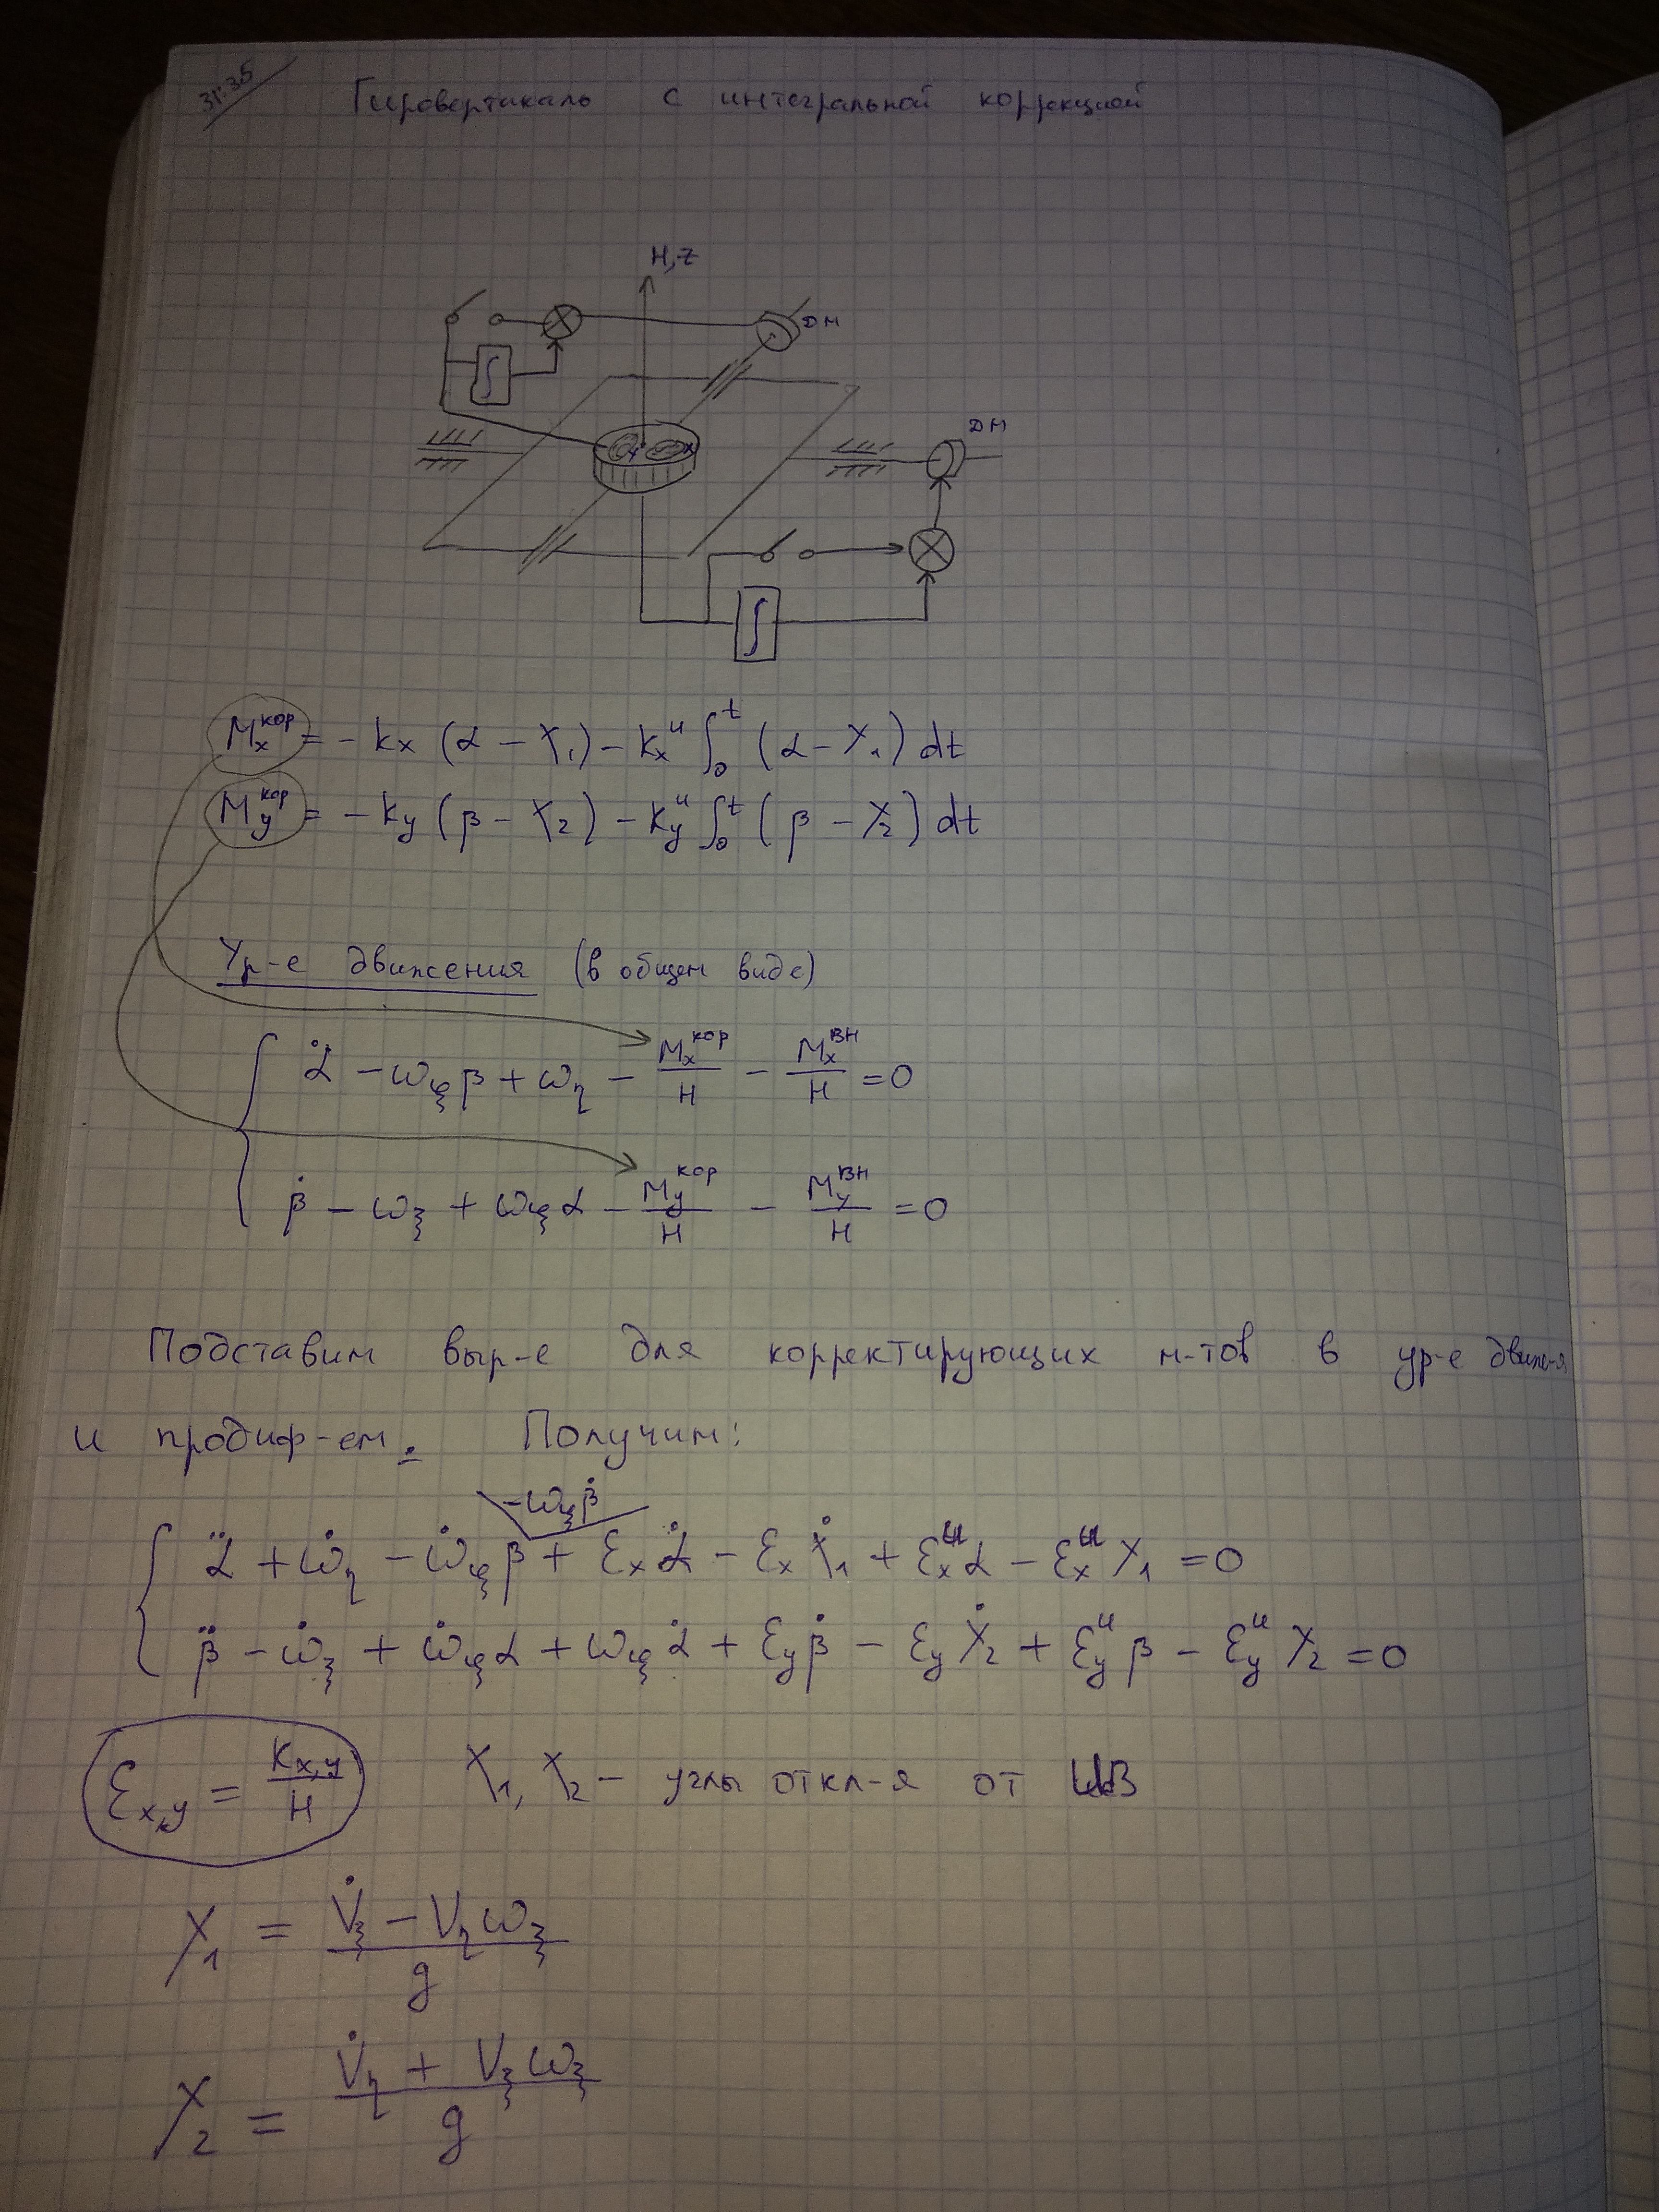 31:35
Гировертикаль с интегральной коррекцией
H, Z
ДМ
∫
ДМ
∫
Mₓᵏᵒᵖ = − kₓ (α − χ₁) − kₓᵘ ∫₀ᵗ (α − χ₁) dt
M_yᵏᵒᵖ = − k_y (β − χ₂) − k_yᵘ ∫₀ᵗ (β − χ₂) dt
Ур-е движения (в общем виде)
α̇ − ω_ζ β + ω_η − Mₓᵏᵒᵖ/H − Mₓᴮᴴ/H = 0
β̇ − ω_ξ + ω_ζ α − M_yᵏᵒᵖ/H − M_yᴮᴴ/H = 0
Подставим выр-е для корректирующих м-тов в ур-е движ-я
и продиф-ем. Получим:
−ω_ζ β̇
α̈ + ω̇_η − ω̇_ζ β + εₓ α̇ − εₓ χ̇₁ + εₓᵘ α − εₓᵘ χ₁ = 0
β̈ − ω̇_ξ + ω̇_ζ α + ω_ζ α̇ + ε_y β̇ − ε_y χ̇₂ + ε_yᵘ β − ε_yᵘ χ₂ = 0
ε_x,y = k_x,y/H χ₁, χ₂ − углы откл-я от ИВ
χ₁ = (V̇_ξ − V_η ω_ξ)/g
χ₂ = (V̇_η + V_ξ ω_ξ)/g